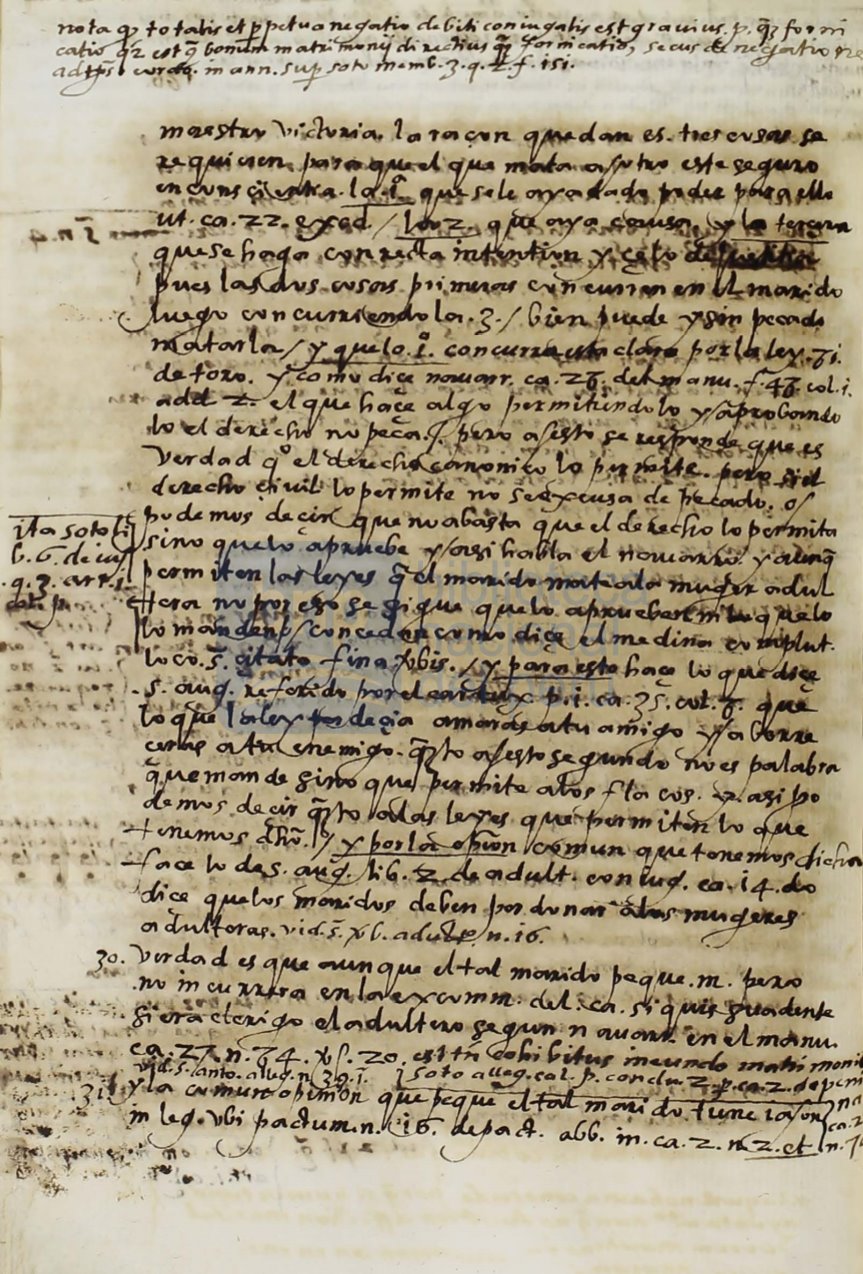 nota q, totalis et perpetua negatio debiti coniugalis est gravius. p. forni
catio est bonum matrimonij directius fornicatio, secus de negatione
cordo. in ann. sup soto memb. 3. q. 2. f. 151.
maestro victoria. la raçon que dan es. tres cosas se
requieren para que el que mata a otro este seguro
en consçientia. la 1ª. que se le aya dado poder para ello
ut. ca. 22. exod. / la 2. que aya causa, y la tercera
que se haga con recta intention y çelo de
pues las dos cosas primeras concurren en el marido
luego concurriendo la .3. / bien puede y sin pecado
matarla / y que lo .1º. concurra esta claro por la ley. 81.
de toro. y como diçe navarr. ca. 26. del manu. fº 46 col. 1.
add 2. el que haçe algo permitiendolo y aprobando
lo el derecho no peca. pero a esto se responde que es
verdad qº el derecho canonico lo permite. pero si el
derecho çivil lo permite no se excusa de pecado. o /
podemos deçir que no abasta que el derecho lo permita
sino que lo apruebe y asi habla el navarro y aunq
permiten las leyes q el marido mate a la muger adul
tera no por eso se sigue que lo aprueben ni que lo
lo manden / conceden como diçe el medina complut.
loco. s. çitato fina verbis. / y para esto haçe lo que diçe
s. aug. referido por el p. 1. ca. 35. col. que
lo que la ley deçia amaras a tu amigo y aborre
ceras a tu enemigo. quanto a esto segundo no es palabra
que mande sino que permite a los flacos. y asi po
demos deçir quanto a las leyes que permiten lo que
tenemos dho. / y por la opinion comun que tenemos dicha
face lo de s. aug. lib. 2. de adult. coniug. ca. 14. do
diçe que los maridos deben perdonar a las mugeres
adulteras. vid. s. vb. adult. n. 16.
30. verdad es que aunque el tal marido peque. m. pero
no incurrira en la excomm. del. ca. si quis suadente
si era clerigo el adultero segun navarr. en el manu.
ca. 27. n. 74. 20. est tn cohibitus ineundo matrimoni
vid. s. anto. alleg. n. 30. 1. soto alleg. col. p. conclu. 2. p. ca. 2. de peni
31. y la comun opinion que peque el tal marido. tune iason
in leg. ubi pactum. n. 16. de pact. abb. in. ca. 2. n. 2. et n.
ita soto li
b. 6. de ius
q. 3. art. 1.